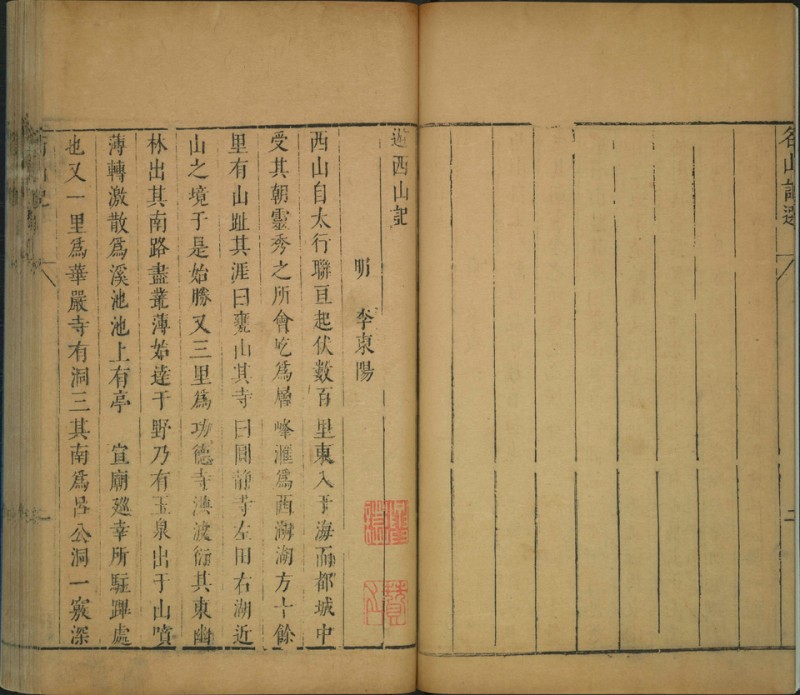 名山記選
二
遊西山記
明 李東陽
西山自太行聯亘起伏數百里東入于海而都城中
受其朝靈秀之所會屹爲層峰滙爲西湖湖方十餘
里有山趾其涯曰甕山其寺曰圓静寺左田右湖近
山之境于是始勝又三里爲功德寺洪波衍其東幽
林出其南路盡叢薄始達于野乃有玉泉出于山噴
薄轉激散爲溪池池上有亭 宣廟廵幸所駐蹕處
也又一里爲華嚴寺有洞三其南爲呂公洞一竅深
山記
一